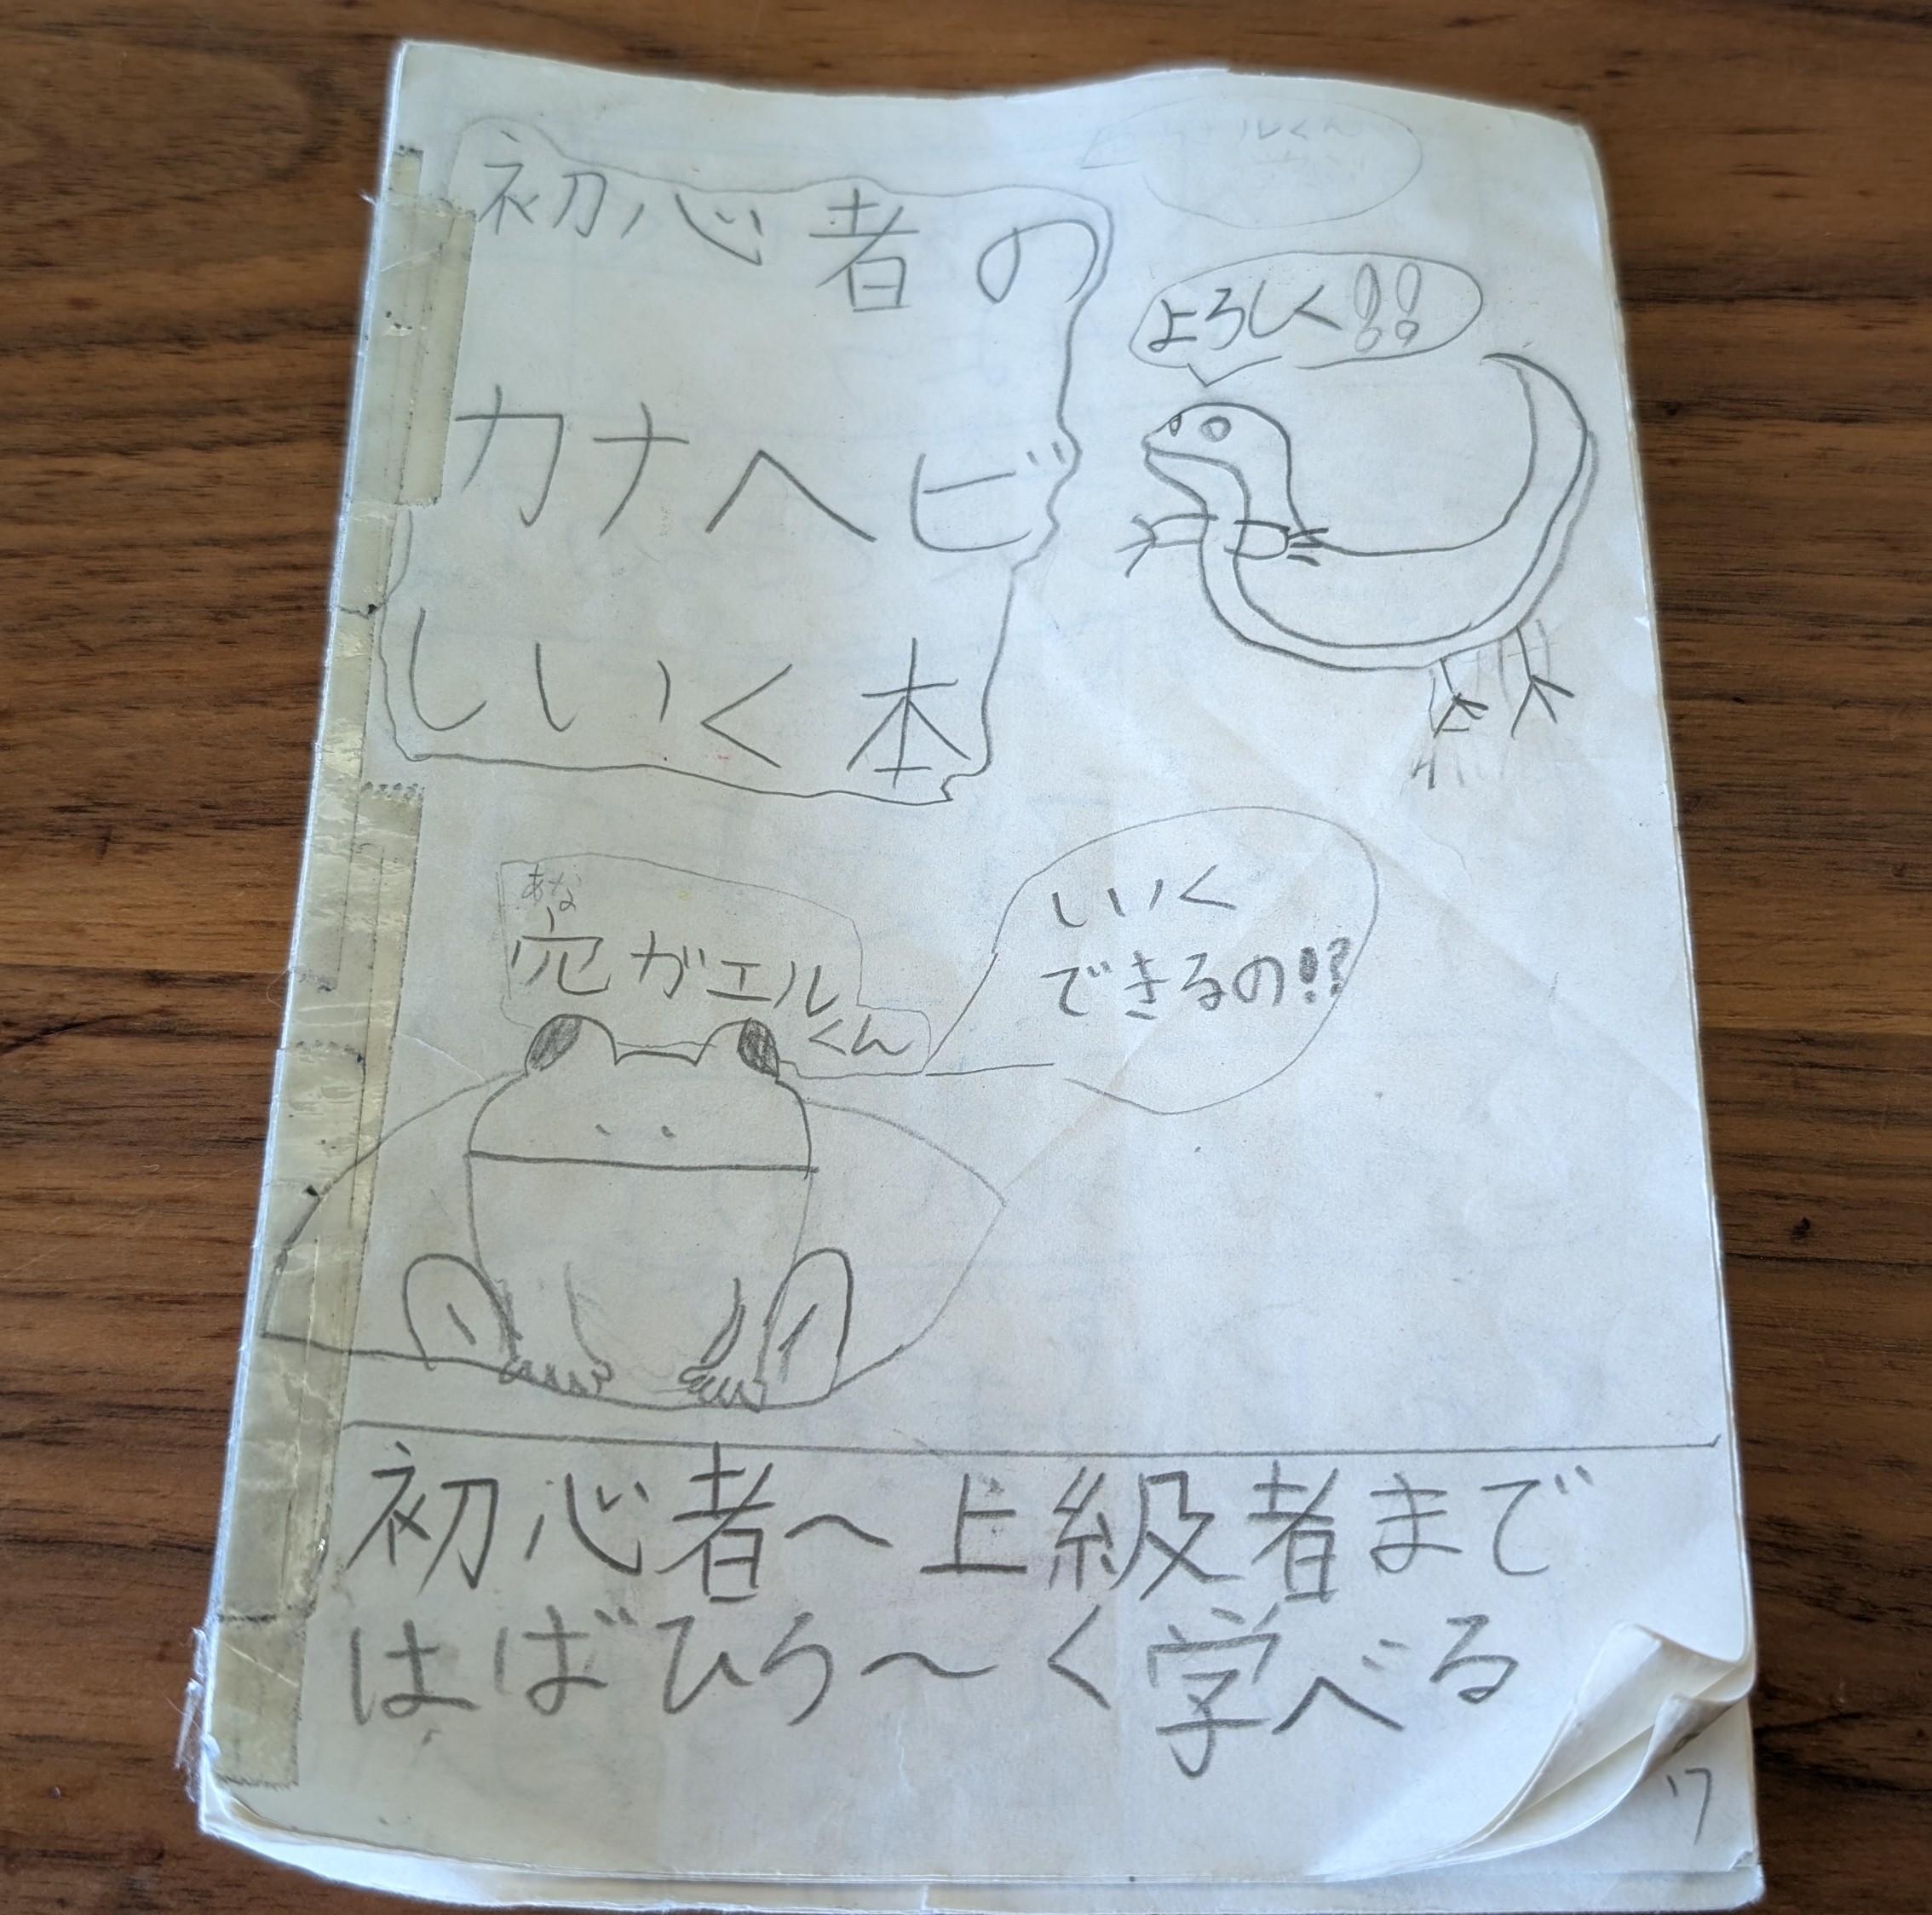 初心者の
カナヘビ
しいく本
よろしく!!
あな
穴ガエル
くん
しいく
できるの!?
初心者へ上級者まで
はばひろ～く学べる
ルくん